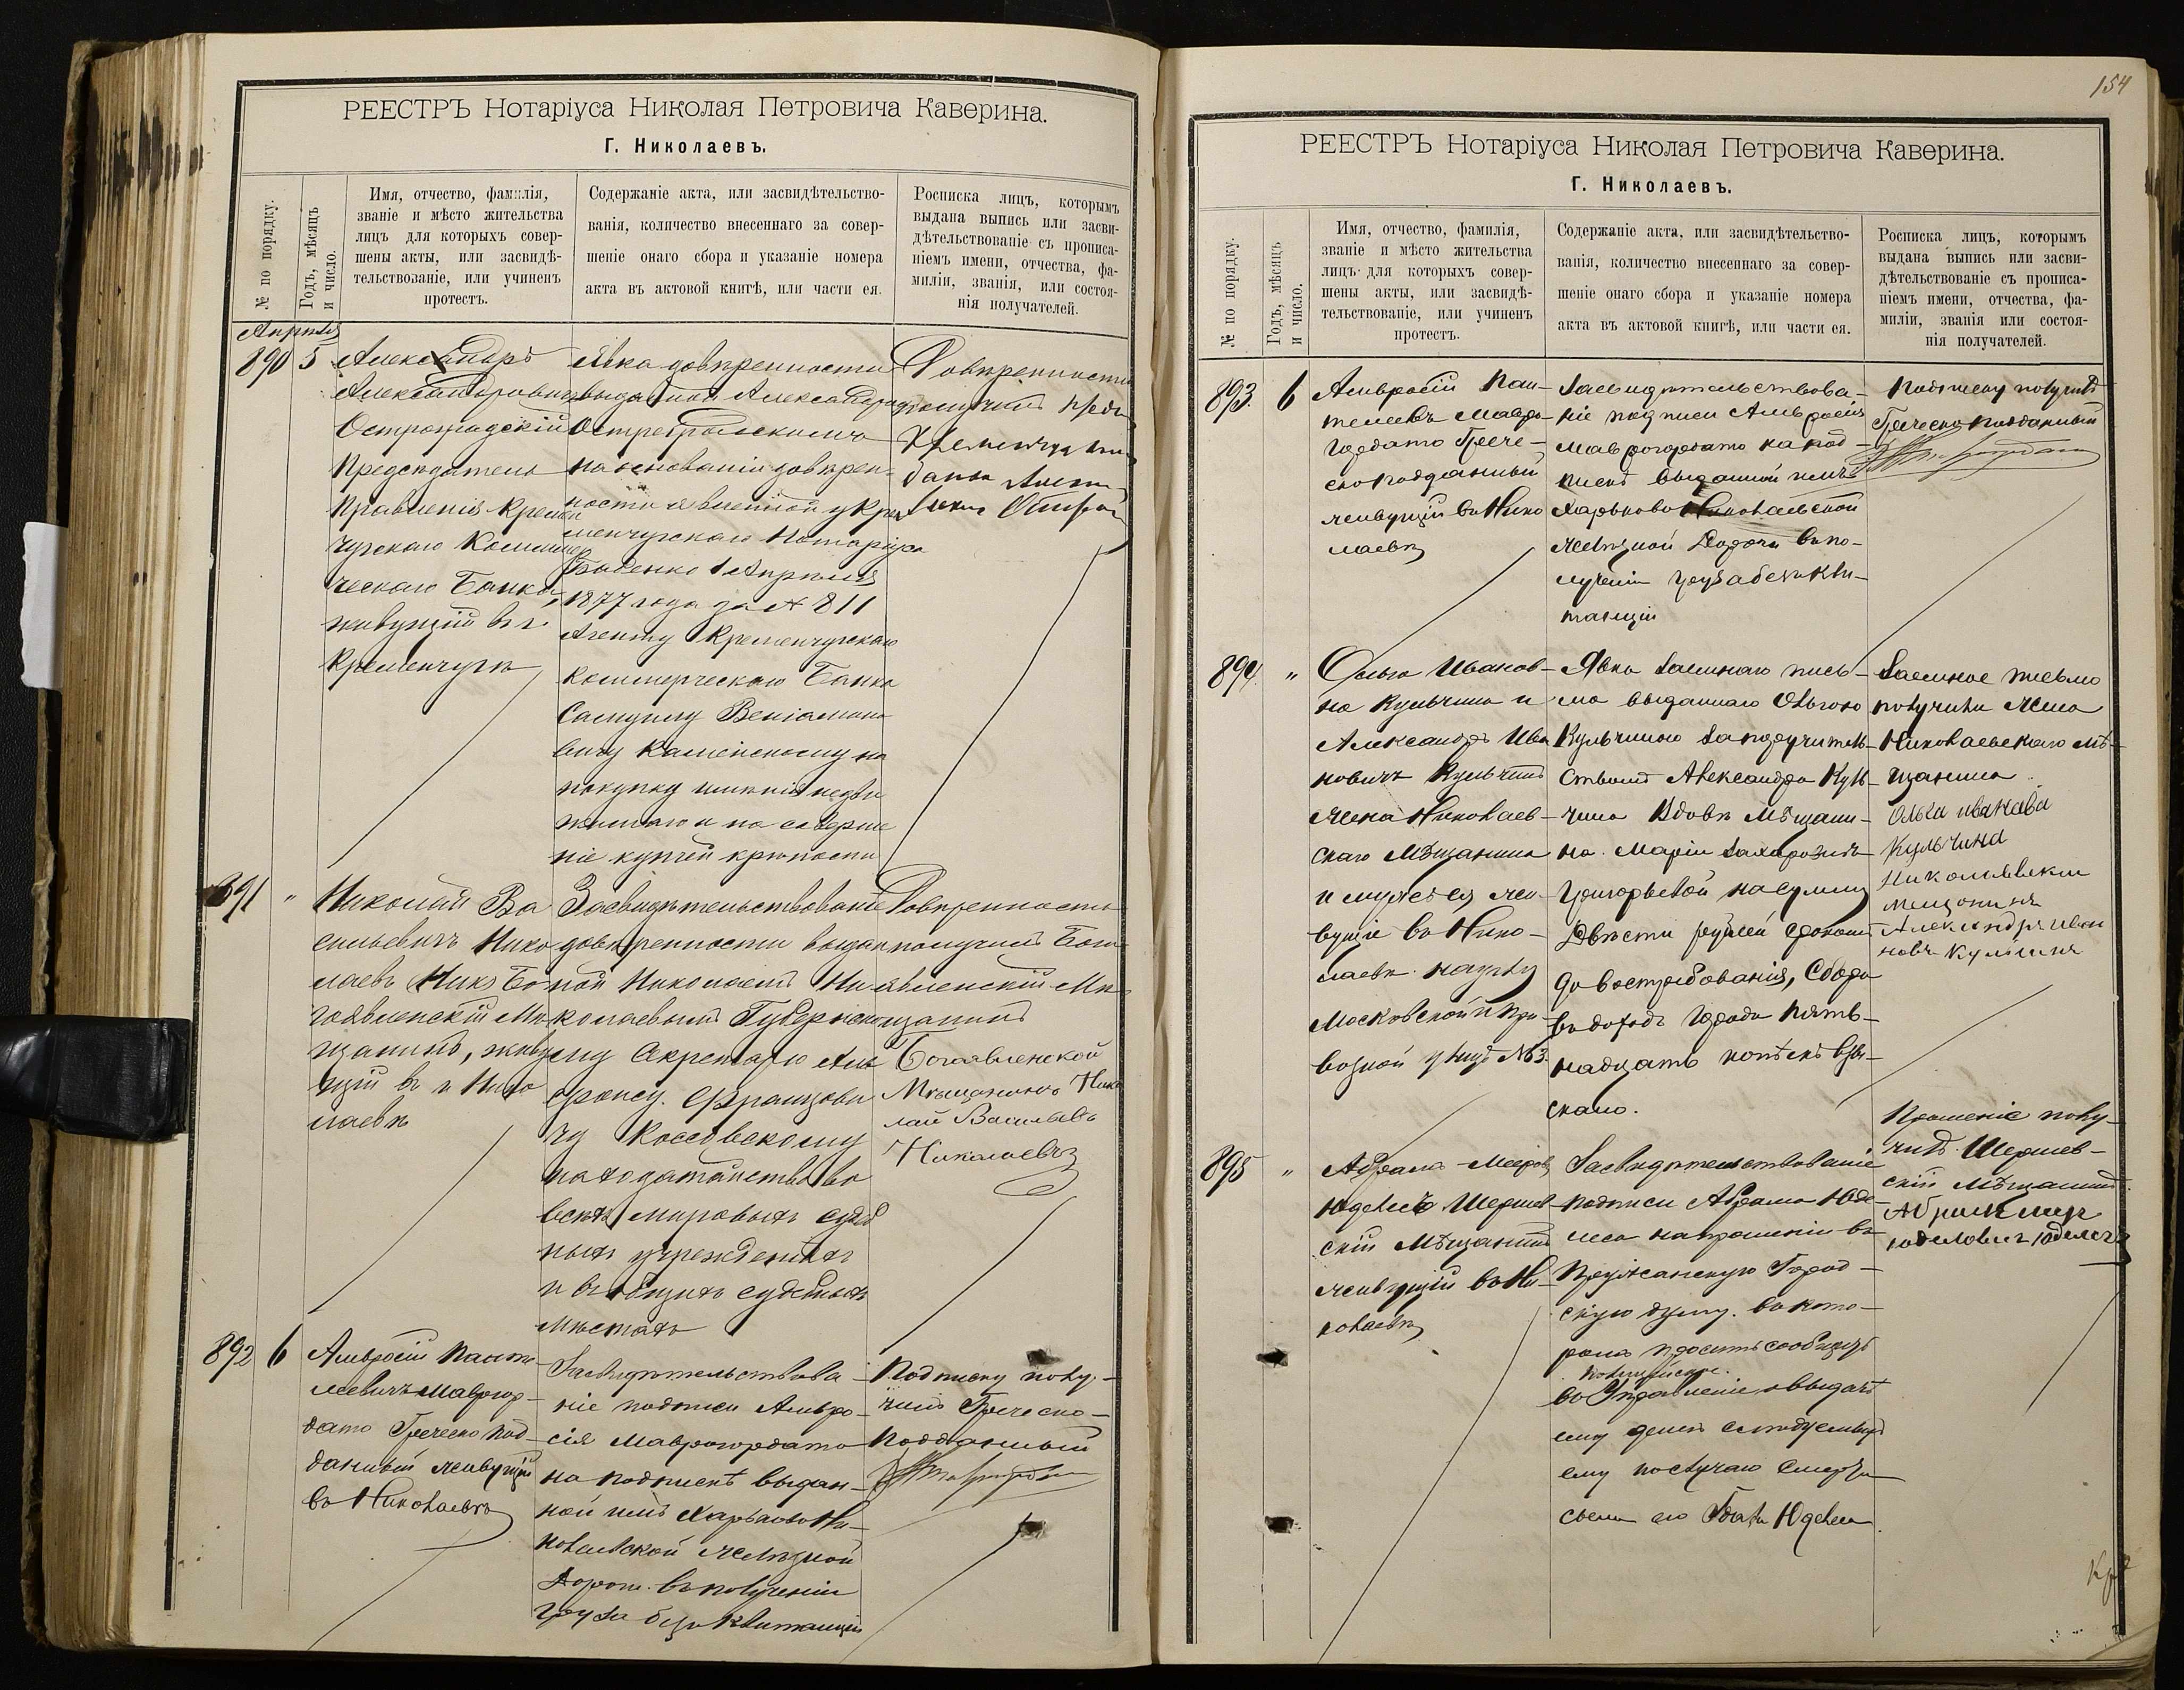 РЕЕСТРЪ Нотаріуса Николая Петровича Каверина.
Г. Николаевъ.
№ по порядку.
Годъ, мѣсяцъ
и число.
Имя, отчество, фамилія,
званіе и мѣсто жительства
лицъ для которыхъ совер-
шены акты, или засвидѣ-
тельствованіе, или учиненъ
протестъ.
Содержаніе акта, или засвидѣтельство-
ванія, количество внесеннаго за совер-
шеніе онаго сбора и указаніе номера
акта въ актовой книгѣ, или части ея.
Росписка лицъ, которымъ
выдана выпись или засви-
дѣтельствованіе съ прописа-
ніемъ имени, отчества, фа-
миліи, званія, или состоя-
нія получателей.
Апрѣля
890 5
Александръ
Александровичъ
Остроградскій
Предсѣдатель
Правленія Кремен
чугскаго Коммер
ческаго Банка,
живущій въ г.
Кременчугѣ
Явка довѣренности
выданной Александромъ
Остроградскимъ
на основаніи довѣрен-
ности явленной у Кре
менчугскаго Нотаріуса
1 Апрѣля
1877 года за № 811
Агенту Кременчугскаго
Коммерческаго Банка
Самуилу Веніамино
вичу Каменскому на
покупку имѣнія недви
жимаго и на соверше
ніе купчей крѣпости
Довѣренность
получилъ
891 "
Николай Ва
сильевичъ Нико
лаевъ Бо
гоявленскій Мѣ
щанинъ, живу
щій въ г. Нико
лаевѣ
Засвидѣтельствованіе
довѣренности выдан
ной Николаемъ Ни
колаевымъ Губернско
му Секретарю Аль
фонсу Францови
чу Коссовскому
на ходатайство во
всѣхъ мировыхъ судеб
ныхъ учрежденіяхъ
и въ общихъ судебныхъ
мѣстахъ
Довѣренность
получилъ Бого
явленскій Мѣ
щанинъ
Богоявленской
Мѣщанинъ Нико
лай Васильевъ
Николаевъ
892 6
Амвросій Панте
леевичъ Маврогор-
дато Греческо под-
данный живущій
въ Николаевѣ
Засвидѣтельствова-
ніе подписи Амвро-
сія Маврогордато
на подпискѣ выдан-
ной имъ Харьково Ни-
колаевской желѣзной
дорогѣ въ полученіи
груза безъ квитанціи
Подписку полу-
чилъ Греческо-
подданный
154
РЕЕСТРЪ Нотаріуса Николая Петровича Каверина.
Г. Николаевъ.
№ по порядку.
Годъ, мѣсяцъ
и число.
Имя, отчество, фамилія,
званіе и мѣсто жительства
лицъ для которыхъ совер-
шены акты, или засвидѣ-
тельствованіе, или учиненъ
протестъ.
Содержаніе акта, или засвидѣтельство-
ванія, количество внесеннаго за совер-
шеніе онаго сбора и указаніе номера
акта въ актовой книгѣ, или части ея.
Росписка лицъ, которымъ
выдана выпись или засви-
дѣтельствованіе съ прописа-
ніемъ имени, отчества, фа-
миліи, званія или состоя-
нія получателей.
893. 6
Амвросій Пан-
телеевъ Мавро-
гордато Грече-
ско подданный
живущій въ Нико
лаевѣ
Засвидѣтельствова-
ніе подписи Амвросія
Маврогордато на под-
пискѣ выданной имъ
Харьково Николаевской
желѣзной Дорогѣ въ по-
лученіи груза безъ кви-
танціи
Подписку получилъ
Греческо подданный
894. "
Ольга Иванов-
на Кульчина и
Александръ Ива
новичъ Кульчинъ
жена Николаев-
скаго Мѣщанина
и мужъ ея жи-
вущіе въ Нико-
лаевѣ на углу
Московской и При
возной улицъ № 3.
Явка заемнаго пись-
ма выданнаго Ольгою
Кульчиною за поручитель-
ствомъ Александра Куль-
чина Вдовѣ Мѣщани-
на Маріи Захаровнѣ
Григорьевой на сумму
Двѣсти рублей срокомъ
до востребованія, Сбора
въ доходъ города пять-
надцать копѣекъ взы-
скано.
Заемное письмо
получили Жена
Николаевскаго Мѣ-
щанина
Ольга иванава
Кульчина
Николаевски
мещонинъ
Александръ Иван
новъ Кульчинъ
895 "
Абрамъ-Мееръ
Юделесъ Шершев-
скій Мѣщанинъ
живущій въ Ни-
колаевѣ
Засвидѣтельствованіе
подписи Абрама Юде-
леса на прошеніи въ
Пружанскую Город-
скую думу въ кото-
ромъ проситъ сообщить
полицейское
во Управленіе о выдачѣ
ему денегъ слѣдуемыхъ
ему по случаю смерти
своего его Брата Юделеса.
Прошеніе полу-
чилъ Шершев-
скій Мѣщанинъ